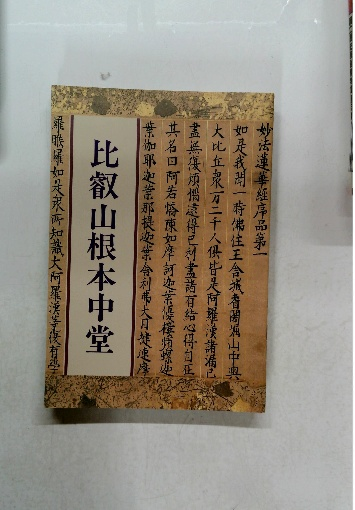 妙法蓮華經序品第一
如是我聞一時佛住王舍城耆闍崛山中與
大比丘衆一万二千人倶皆是阿羅漢諸漏已
盡無復煩惱逮得己利盡諸有結心得自在
其名曰阿若憍陳如摩訶迦葉優樓頻螺迦
葉伽耶迦葉那提迦葉舍利弗大目揵連摩
比叡山根本中堂
羅睺羅如是衆所知識大阿羅漢等復有學